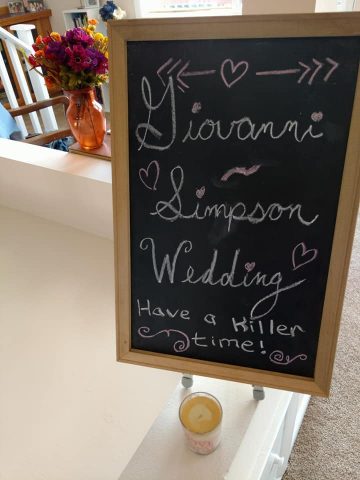 Giovanni
~
Simpson
Wedding
Have a Killer
time!